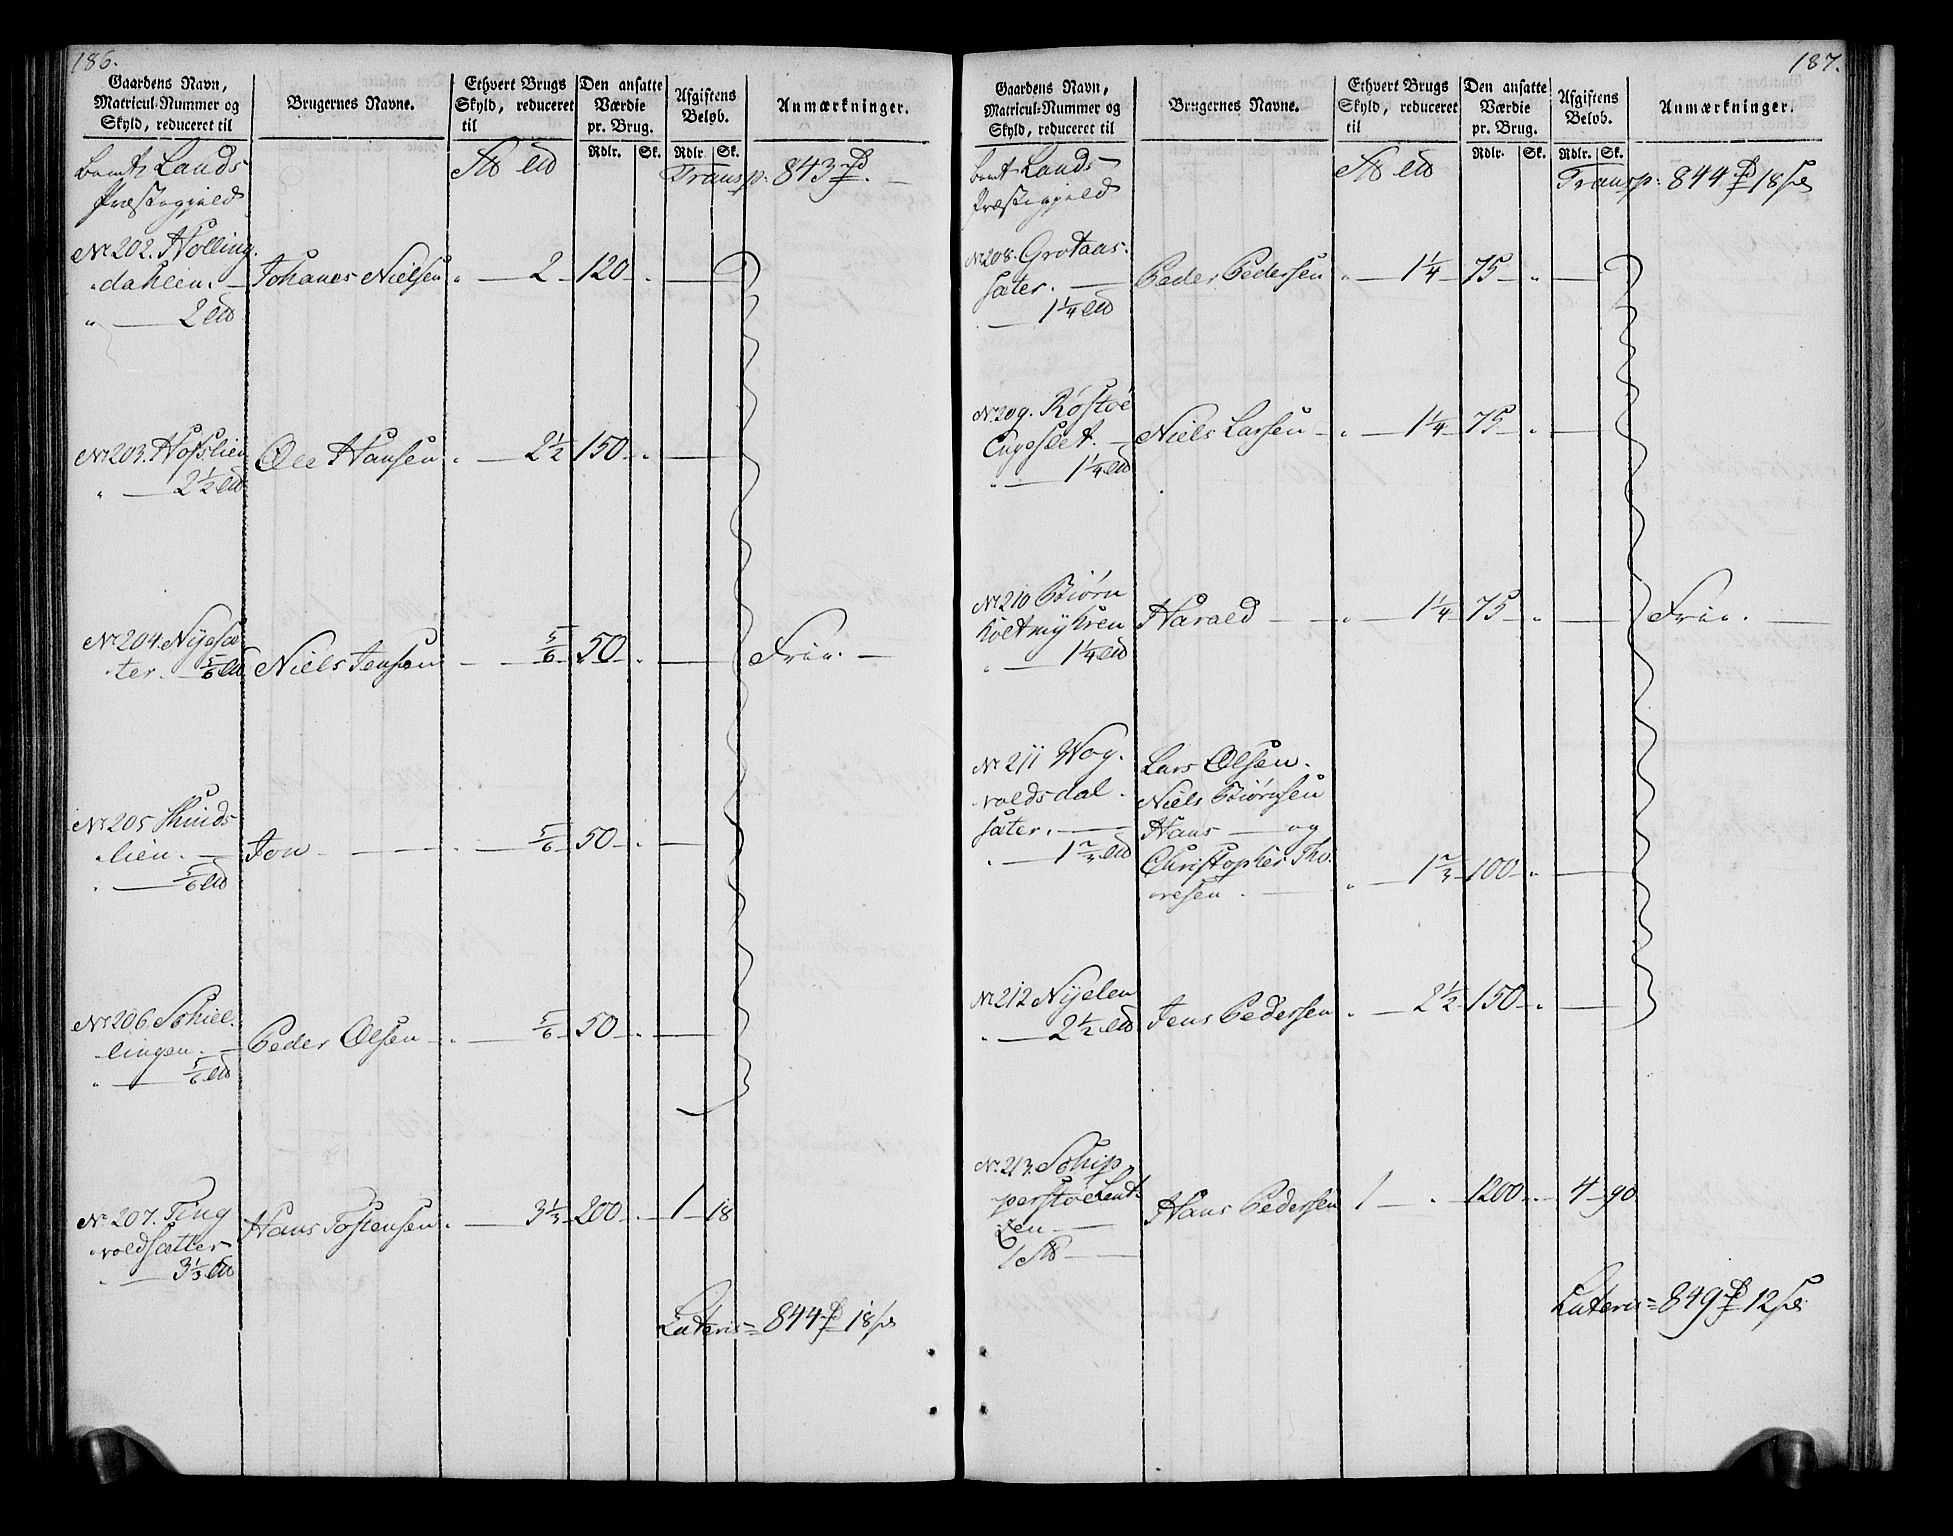 186.
Gaardens Navn, Matricul-Nummer og Skyld, reduceret til
Brugernes Navne.
Ethvert Brugs Skyld, reduceret til
Den ansatte Værdie pr. Brug.
Afgiftens Beløb.
Anmærkninger.
Rdlr. Sk. Rdlr. Sk.
Lands
Præstegield
Transp. 843
No 202. Holling-
dahlen. Johanes Nielsen 2 120
2
No 203. Hofslien Ole Hansen 2½ 150
2½
No 204. Nysæ-
ter. 5/6 Niels Jensen 5/6 50 Frie.
No 205
lien. Jon 5/6 50
5/6
No 206. Schiel-
lingen. Peder Olsen 5/6 50
5/6
No 207. Ting
voldsætter Hans Tostensen 3⅓ 200 1 18
3⅓
Lateris = 844 18
187.
Gaardens Navn, Matricul-Nummer og Skyld, reduceret til
Brugernes Navne.
Ethvert Brugs Skyld, reduceret til
Den ansatte Værdie pr. Brug.
Afgiftens Beløb.
Anmærkninger.
Rdlr. Sk. Rdlr. Sk.
Lands
Præstegield
Transp. 844 18
No 208. Grotaas-
sæter. Peder Pedersen 1¼ 75
1¼
No 209. Røstøe
Engeslet. Niels Larsen 1¼ 75
1¼
No 210 Biørn
Harald 1¼ 75 Frie.
1¼
No 211 Wog-
voldsdal- Lars Olsen.
sæter. Niels Biørnsen
Hans og
1⅔ Christopher Tho-
resen. 1⅔ 100
No 212 Nyelen
2½ Jens Pedersen 2½ 150
No 213. Schip
Hans Pedersen 1 1200 4 90
Lateris = 849 12